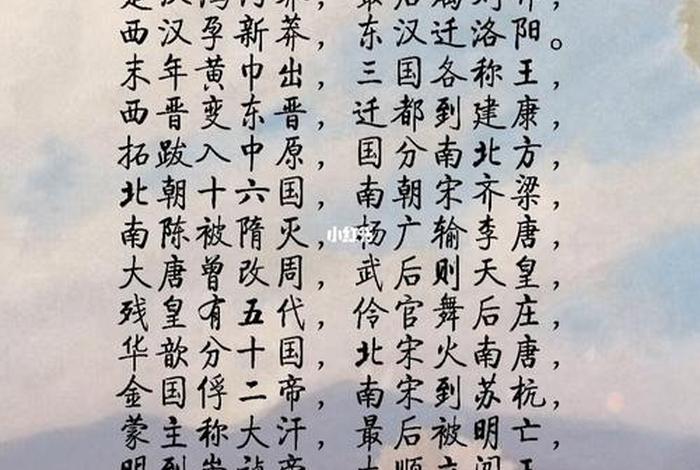 西汉孕新莽，东汉迁洛阳。
末年黄巾出，三国各称王，
西晋变东晋，迁都到建康，
拓跋入中原，国分南北方，
北朝十六国，南朝宋齐梁，
南陈被隋灭，杨广输李唐，
大唐曾改周，武后则天皇，
残皇有五代，伶官舞后庄，
华歆分十国，北宋火南唐，
金国俘二帝，南宋到苏杭，
蒙主称大汗，最后被明亡，
小红书